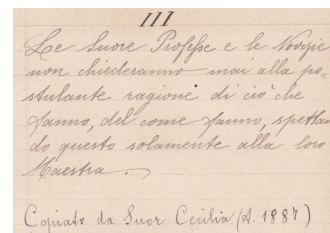 III
Le Suore Professe e le Novizie
non chiederanno mai alla po-
stulante ragione di ciò che
fanno, del come fanno, spettan
do questo solamente alla loro
Maestra.
Copiato da Suor Cecilia (A. 1887)